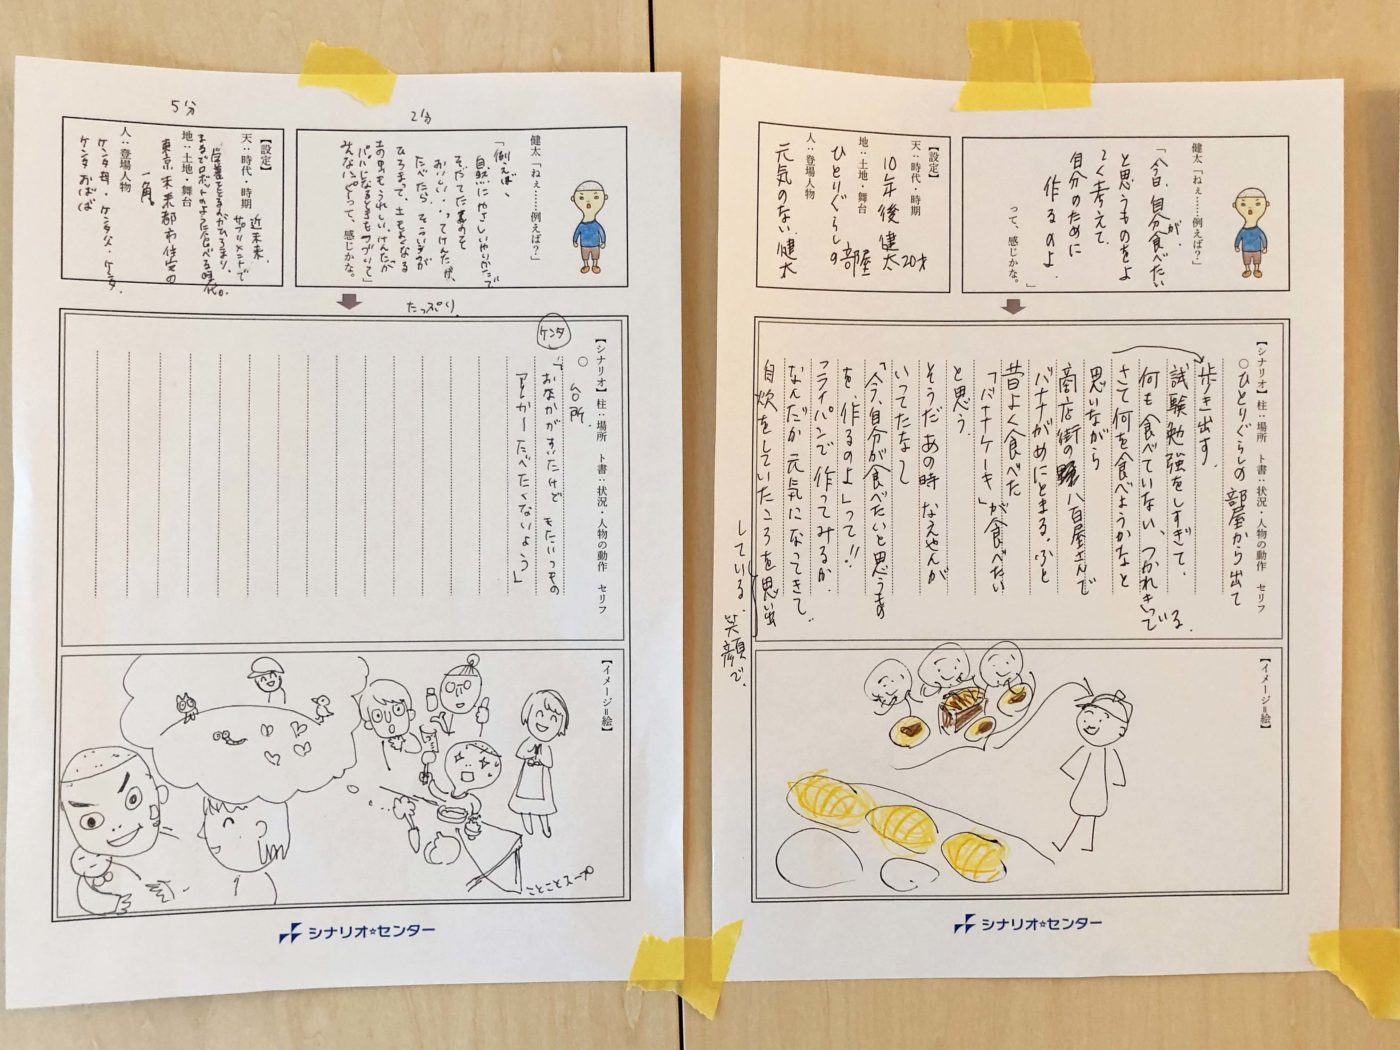 5分
2分
健太「ねぇ……例えば?」
「例えば、
自然にやさしいやりかたで
そだてた麦のそ
たべたら、そういうのが
ひろまって、土もよくなる
って、感じかな。
【設定】
天：時代・時期
近未来、
サプリメントで
栄養をとるのがひろまり、
まるでロボットのように食べる時代。
地：土地・舞台
東京未来都市住宅の
一角。
人：登場人物
ケンタ母、ケンタ父、ケンタ、
ケンタおばば
たっぷり
【シナリオ】　柱：場所　ト書：状況・人物の動作　セリフ
○　台所
ケンタ
「おなかがすいたけど　またいつもの
たべたくないよう」
【イメージ=絵】
ことことスープ
シナリオ☆センター
健太「ねぇ……例えば?」
「今日、自分が食べたい
と思うものをよ
く考えて、
自分のために
作るのよ
」
って、感じかな。
【設定】
天：時代・時期
10年後 健太20才
地：土地・舞台
ひとりぐらしの部屋
人：登場人物
元気のない健太
【シナリオ】　柱：場所　ト書：状況・人物の動作　セリフ
○ひとりぐらしの部屋から出て
歩き出す。
試験勉強をしすぎて、
何も食べていない、つかれきっている。
さて何を食べようかなと
思いながら
商店街の八百屋さんで
バナナがめにとまる。ふと
昔よく食べた
「バナナケーキ」が食べたい
と思う。
そうだあの時　なえやんが
いってたなー
「今、自分が食べたいと思うもの
を、作るのよ」って!!
フライパンで作ってみるか
なんだか元気になってきて、
自炊をしていたころを思い出
している。笑顔で。
【イメージ=絵】
シナリオ☆センター